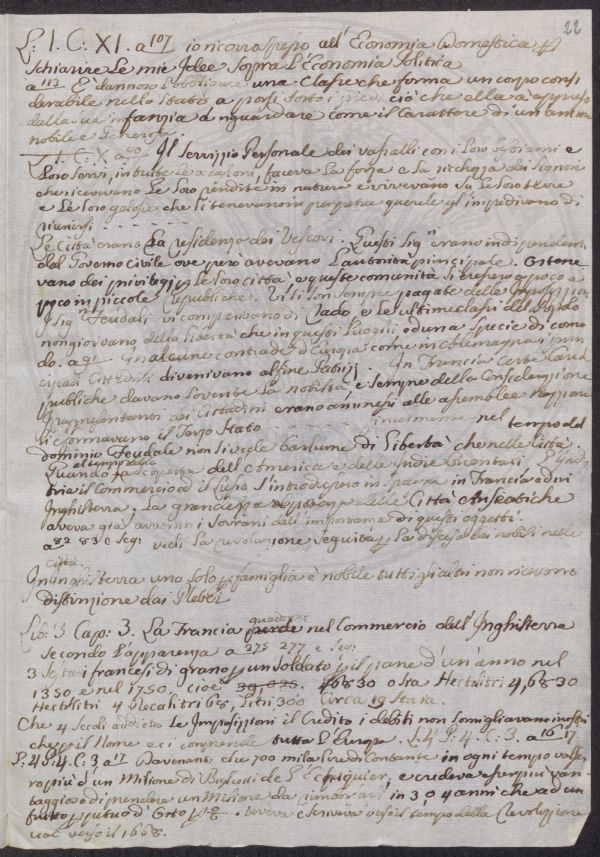 22
L: I. C: XI. a 107 io ricorra spesso all' Economia Domestica p
schiarire Le mie Idee sopra l'Economia Politica
a 113 È dannoso l'obbligare una Classe che forma un corpo consi
derabile nello Stato a porsi sotto i piedi ciò che ella à appreso
dalla sua infanzia a riguardare come il Carattere di un anima
nobile e generosa.
I. C. X a 90 Il servizio Personale dei vassalli con i loro
loro servi, in tutte le occasioni, faceva la forza e la ricchezza dei Signori
che ricevevano Le loro rendite in natura e vivevano su Le loro terre
e Le loro gelosie che li tenevano in perpetue querele gl'impedivano di
riunirsi
Le Città erano La residenza dei Vescovi. Questi Sig.ri erano indipendenti
dal Governo Civile ove però avevano l'autorità principale. Ottene
vano dei privilegj p le loro città e queste comunità si eressero a poco a
poco in piccole Repubbliche. Esse son sempre pagate delle Imposizioni
I Sig.ri Feudali vi comprendevano di rado e Le ultime classi del Popolo
non gioivano della libertà che in questi Luoghi o d una specie di como
do. a 91 In alcune contrade d'Europa come in Alemagna i prin
cipali Cittadini divenivano alfine Patrizj. In Francia Certe Cariche
pubbliche davano sovente La nobiltà, e sempre della Considerazione
I rappresentanti dei Cittadini erano ammessi alle asemblee Nazionali
vi formavano il Terzo Stato nel tempo del
dominio Feudale non si vede barlume di Libertà che nelle Città.
Quando al tempo della scoperta dell'America e delle Indie Orientali l'Indus
tria il Commercio ed il Lusso s'introdussero in Francia ed in
Inghilterra; La grandezza delle Città Anseatiche
aveva già avvertiti i Sovrani dell'importanza di questi oggetti.
a 82 83 e seg: vedi La rivoluzione seguita p La discesa dei nobili nelle
città.
In Inghilterra uno solo p famiglia è nobile tutti gli altri non ricevono
distinzione dai Plebei
Lib: 3 Cap: 3. La Francia guadagna perde nel Commercio dell'Inghilterra
secondo l'apparenza a 275 277 e seg:
3 Sestari francesi di grano p un soldato p il pane d'un anno nel
1350 e nel 1750 cioè 39,025. 46830 o sia Hectolitri 4,6830
Hectolitri 4 Decalitri 68, Litri 300 Circa 19 Staia.
Che 4 secoli addietro le Imposizioni il Credito i debiti non somigliavano i nostri
che p il Nome e ci comprende tutta l'Europa. L: 4 P: 4. C: 3. a 16 17
L: 4 P: 4. C: 3 a 17 Davenant: che 700 mila Lire di Contante in ogni tempo valse
ro più d'un Milione di Biglietti de l'Echiquier, e credeva esser più van
taggioso di prendere un Milione da rimborsarsi in 3 o 4 anni che ad un
frutto p d'Otto p %. viveva e scriveva verso il tempo della Rivoluzione
verso il 1668.